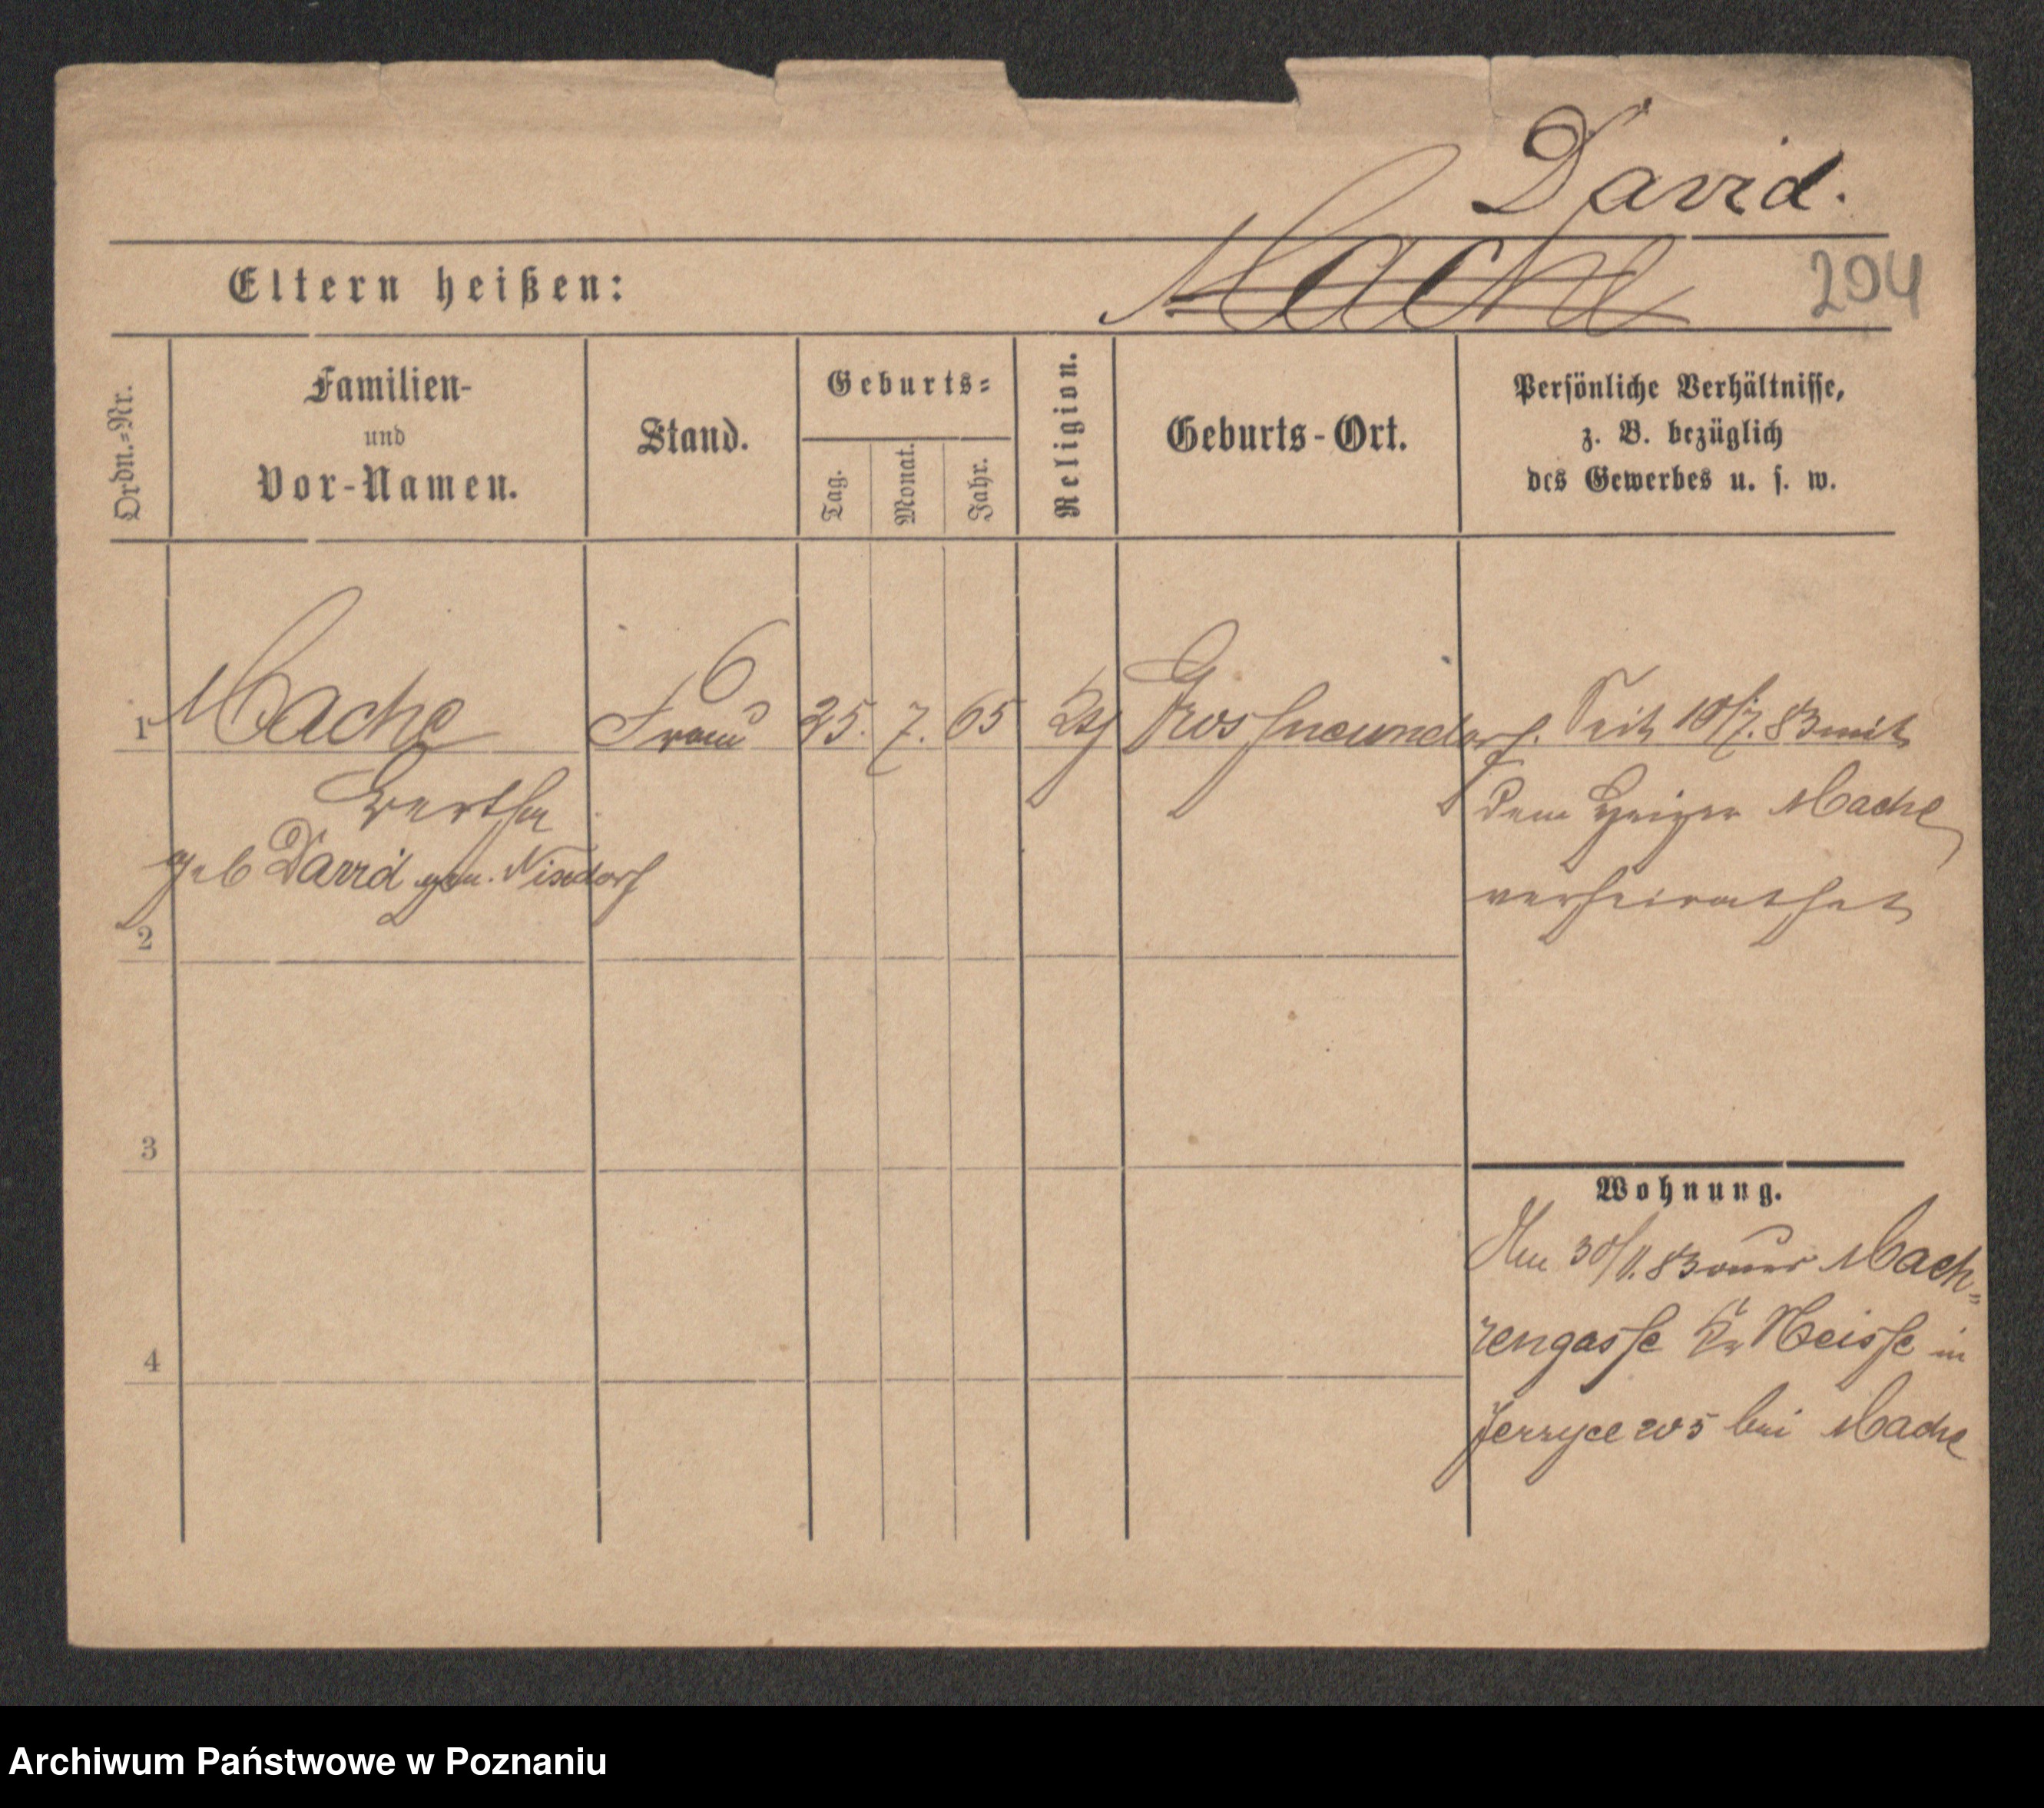 David.
Eltern heißen: Mache 204
Ordn.=Nr.
Familien-
und
Vor-Namen.
Stand.
Geburts=
Tag.
Monat.
Jahr.
Religion.
Geburts-Ort.
Persönliche Verhältnisse,
z. B. bezüglich
des Gewerbes u. s. w.
6
1 Mache Frau 25. 7. 65 Grosneundorf. Seit 10/7. 83 mit
Bertha dem Heizer Mache
geb David gen. Nixdorf verheirathet
2
3
Wohnung.
Am 30/11. 83 aus Mach=
rengasse Kr Neisse in
4
Jerzyce 205 bei Mache
Archiwum Państwowe w Poznaniu